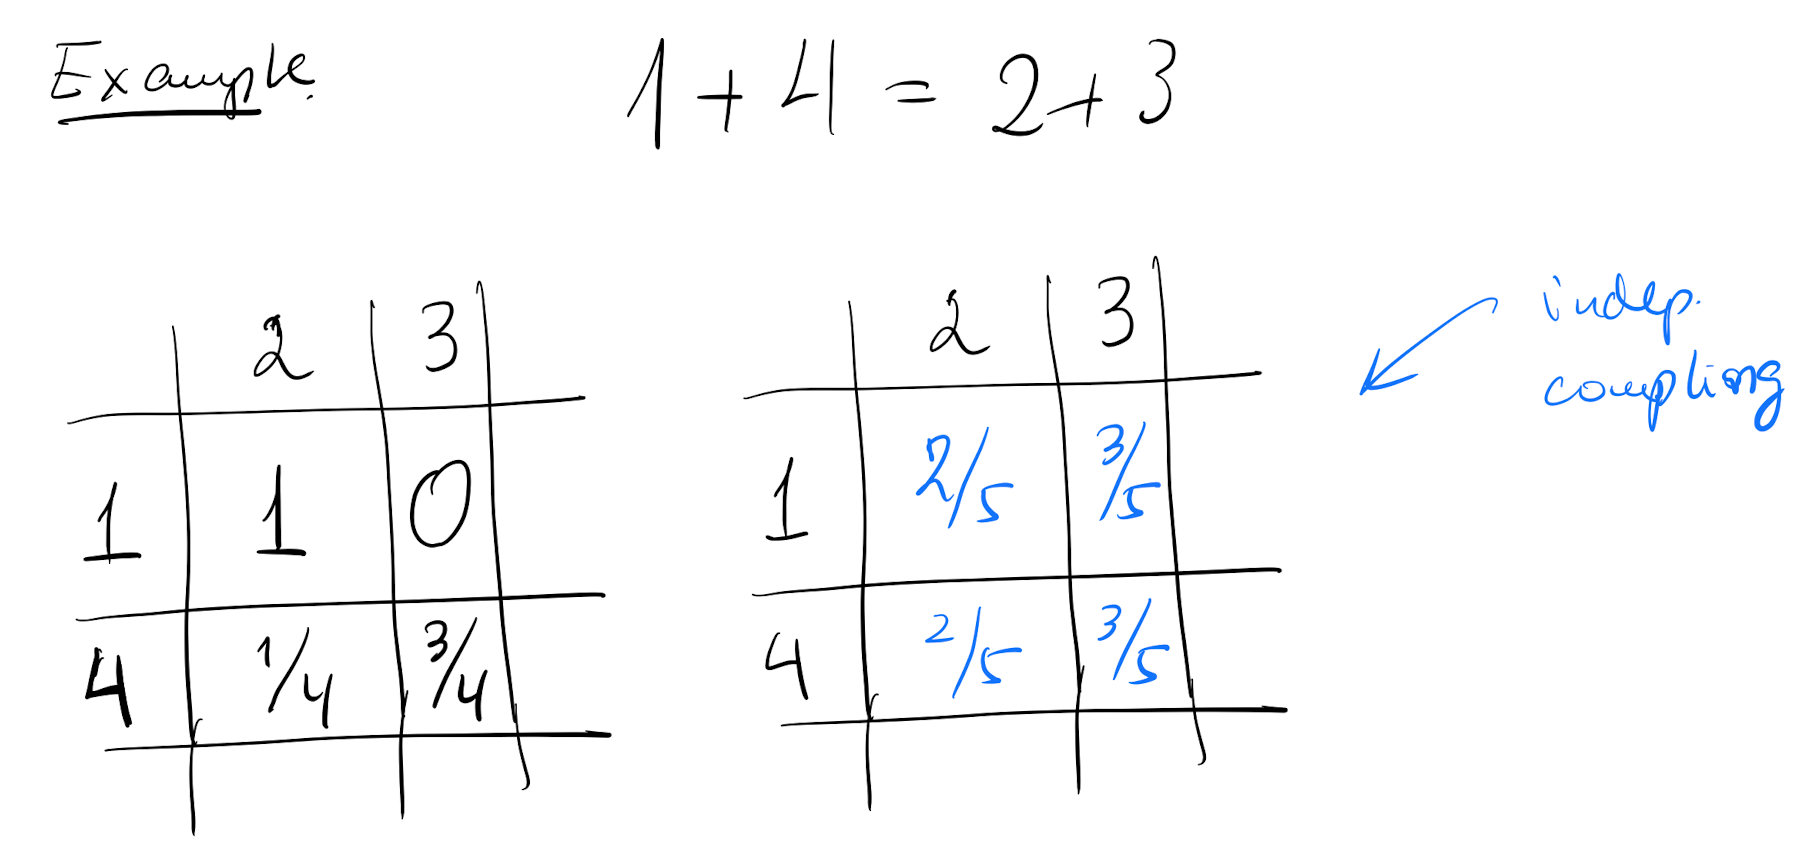 Example.
1 + 4 = 2 + 3
2 3
1 1 0
4 1/4 3/4
2 3
1 2/5 3/5
4 2/5 3/5
indep.
coupling